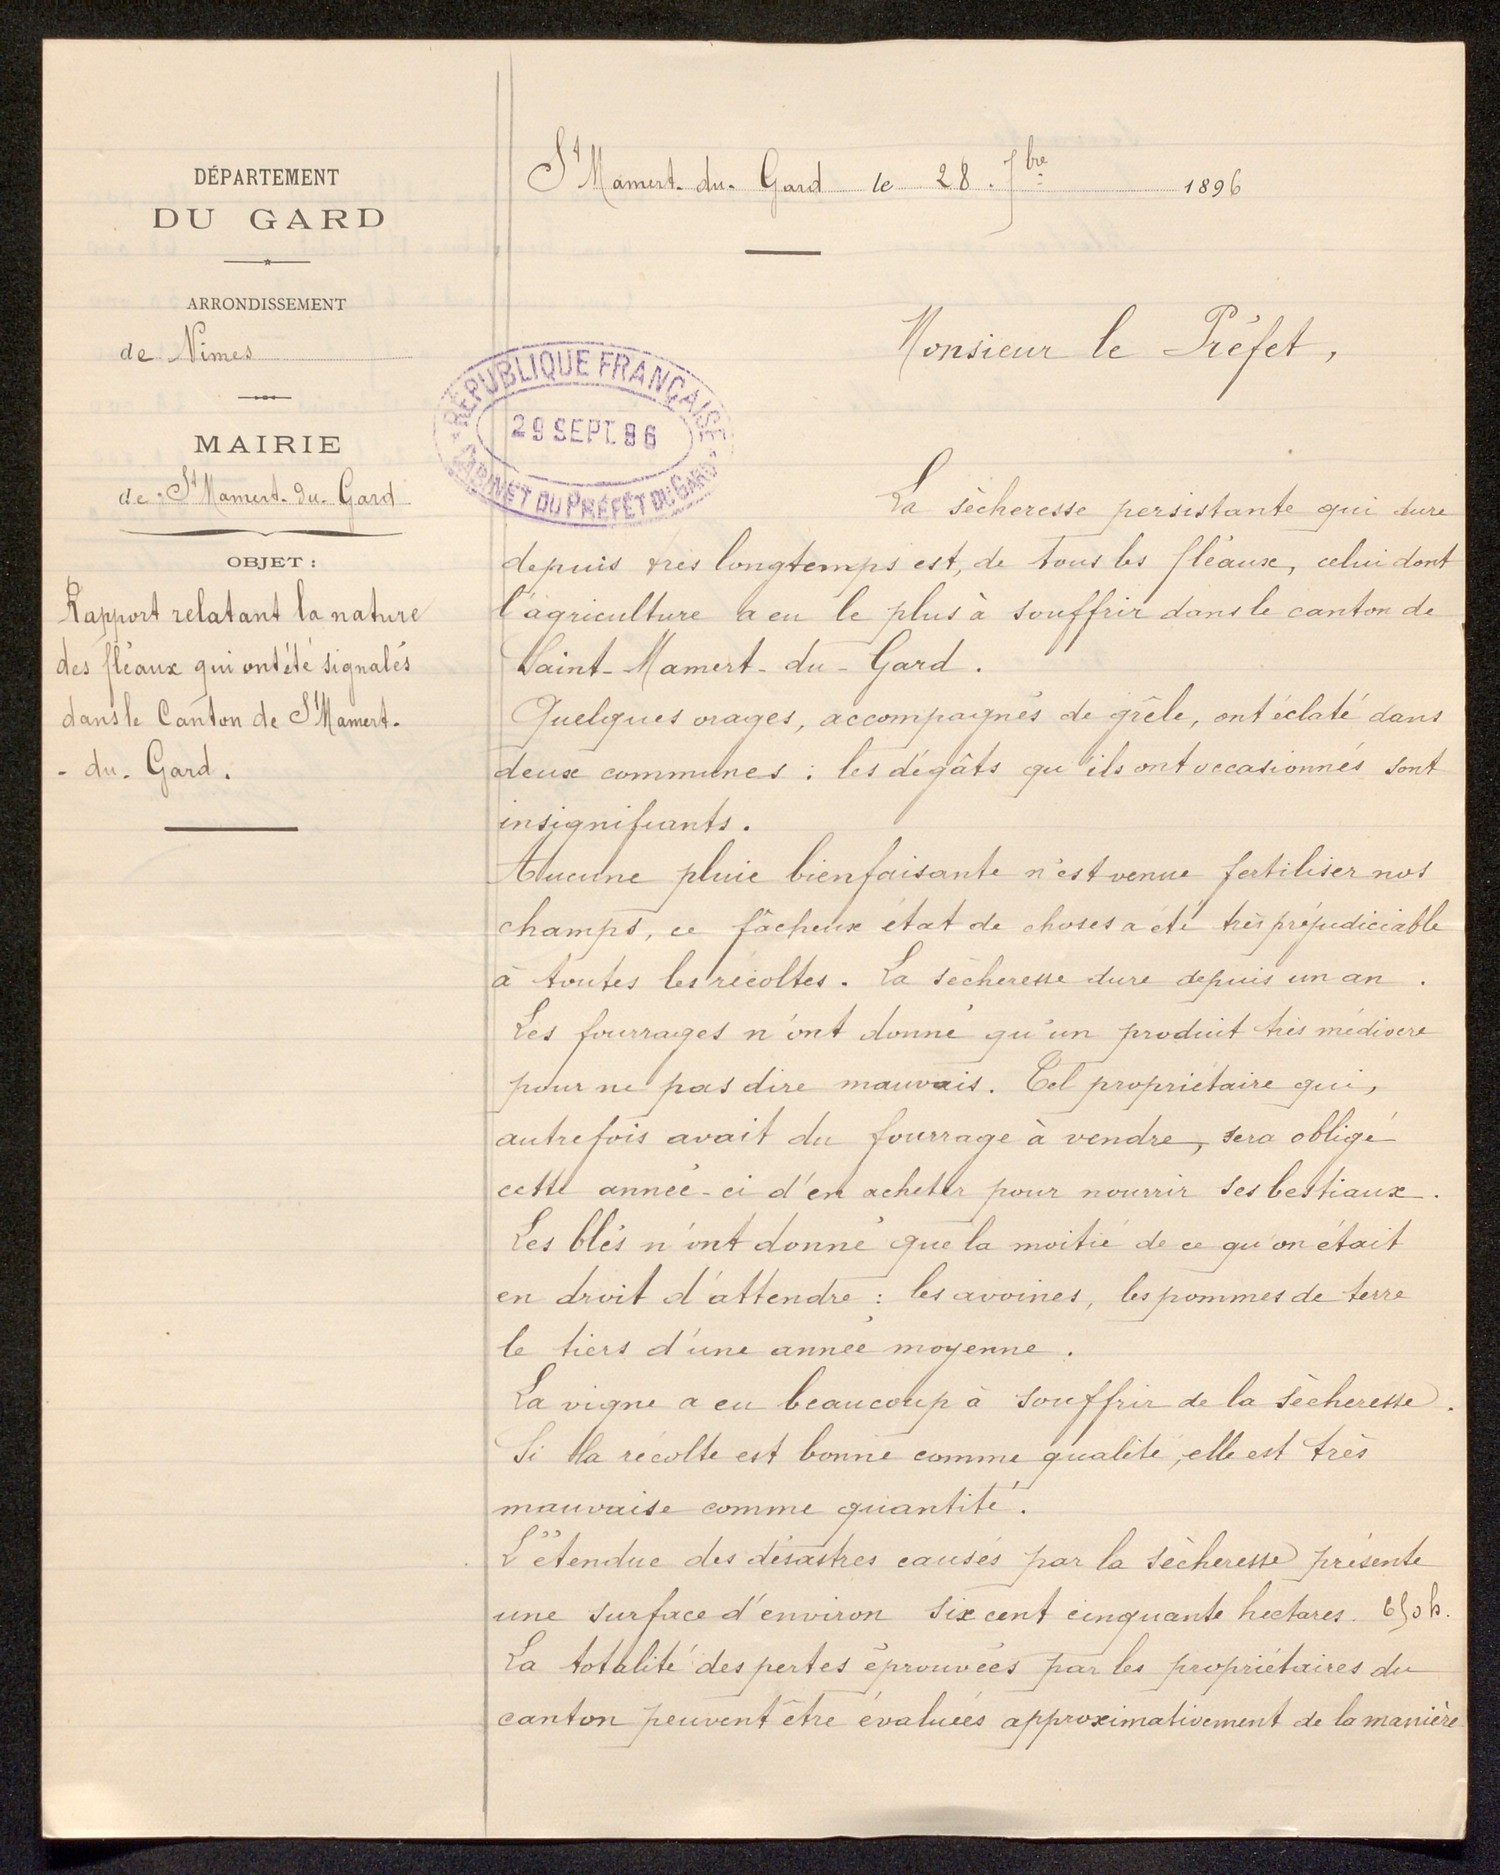 DÉPARTEMENT
DU GARD
ARRONDISSEMENT
de Nimes
MAIRIE
de St Mamert-du-Gard
OBJET :
Rapport relatant la nature
des fléaux qui ont été signalés
dans le Canton de St Mamert-
-du-Gard.
St Mamert-du-Gard le 28 7bre 1896
Monsieur le Préfet,
RÉPUBLIQUE FRANÇAISE
29 SEPT. 96
CABINET DU PRÉFET DU GARD
La sècheresse persistante qui dure
depuis très longtemps est, de tous les fléaux, celui dont
l'agriculture a eu le plus à souffrir dans le canton de
Saint-Mamert-du-Gard.
Quelques orages, accompagnés de grêle, ont éclaté dans
deux communes : les dégâts qu'ils ont occasionnés sont
insignifiants.
Aucune pluie bienfaisante n'est venue fertiliser nos
champs, ce fâcheux état de choses a été très préjudiciable
à toutes les récoltes. La sècheresse dure depuis un an.
Les fourrages n'ont donné qu'un produit très médiocre
pour ne pas dire mauvais. Tel propriétaire qui,
autrefois avait du fourrage à vendre, sera obligé
cette année-ci d'en acheter pour nourrir ses bestiaux.
Les blés n'ont donné que la moitié de ce qu'on était
en droit d'attendre : les avoines, les pommes de terre
le tiers d'une année moyenne.
La vigne a eu beaucoup à souffrir de la sècheresse.
Si la récolte est bonne comme qualité, elle est très
mauvaise comme quantité.
L'étendue des désastres causés par la sècheresse présente
une surface d'environ six cent cinquante hectares. 650 h.
La totalité des pertes éprouvées par les propriétaires du
canton peuvent être évaluées approximativement de la manière